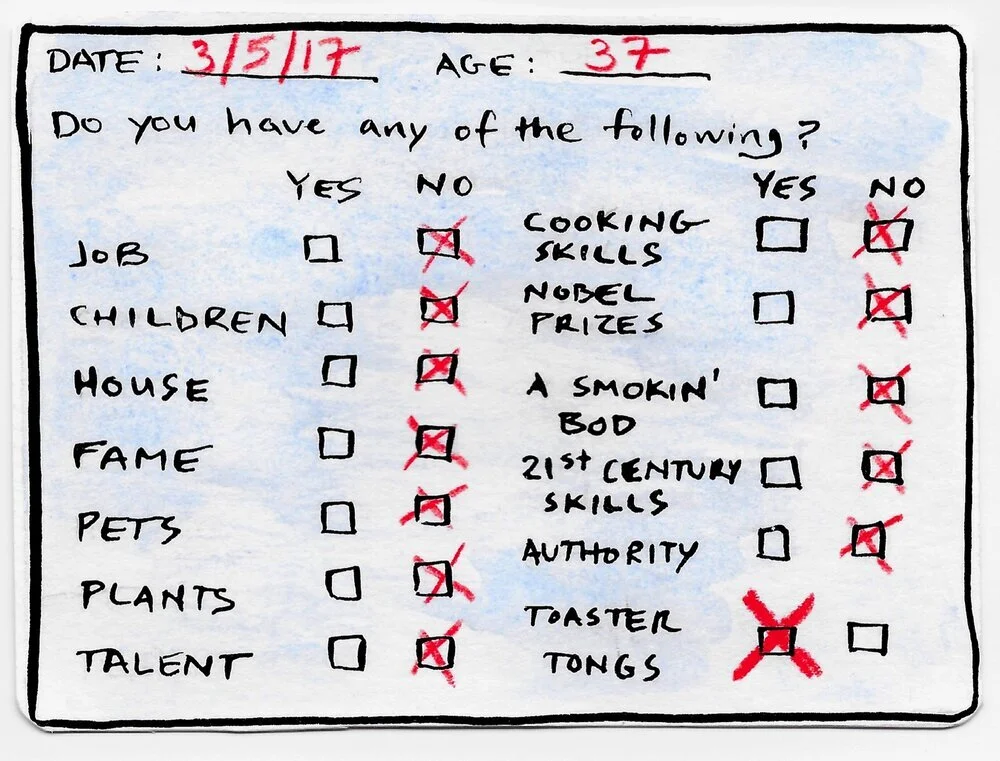 DATE: 3/5/17 AGE: 37
Do you have any of the following?
YES NO
JOB
CHILDREN
HOUSE
FAME
PETS
PLANTS
TALENT
YES NO
COOKING
SKILLS
NOBEL
PRIZES
A SMOKIN'
BOD
21st CENTURY
SKILLS
AUTHORITY
TOASTER
TONGS